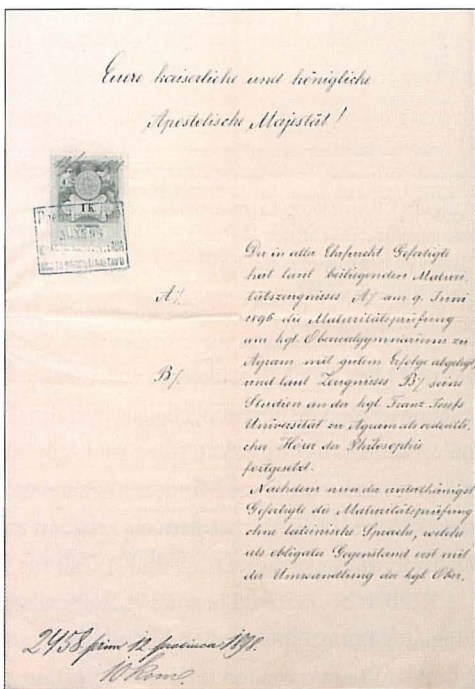 Euere kaiserliche und königliche
Apostolische Majestät!
1K
Der in aller Ehrfurcht Gefertigte
hat laut beiliegenden Maturi-
A/. tätszeugnisses A/. am 9. Juni
1896 die Maturitätsprüfung
am kgl. Oberrealgymnasium zu
Agram mit gutem Erfolge abgelegt,
B/. und laut Zeugnisses B/. seine
Studien an der kgl. Franz Josefs
Universität zu Agram als ordentli-
cher Hörer der Philosophie
fortgesetzt.
Nachdem nun der unterthänigst
Gefertigte die Maturitätsprüfung
ohne lateinische Sprache, welche
als obligater Gegenstand erst mit
der Umwandlung der kgl. Ober-
2458 prim 12 prosinca 1898.
10 kom